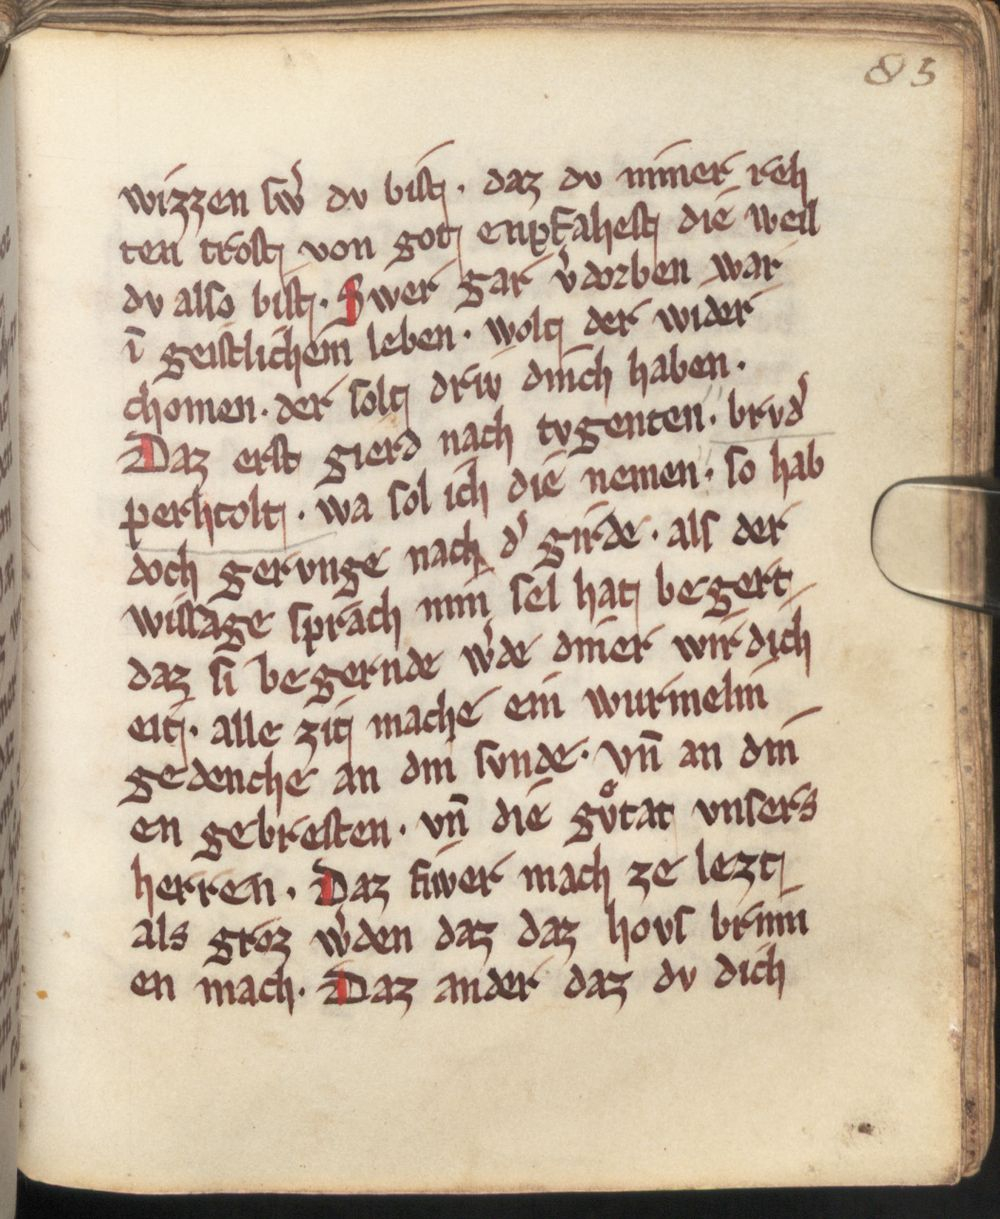 83
wizzen sw̾ dv bist · daz dv nimer reh
ten trost von got enpfahest die weil
dv also bist · Swer gar v̾dorben war
ī geistlichem leben · wolt der wider
chomen · der solt driv dinch haben ·
Daz erst gierd nach tvgenten · brvd̾
perhtolt · wa sol ich die nemen · so hab
doch gervnge nach d̾ girde · als der
wissage sprach min sel hat begert
daz si begernde w̾de diner wirdich
eit · alle zit mache ein wurmelin
gedenche an din svnde · vn̄ an din
en gebresten · vn̄ die gvͦtat vnsers
herren · Daz fiwer mach ze lezt
als groz w̾den daz daz hovs brinn
en mach · Daz ander daz dv dich